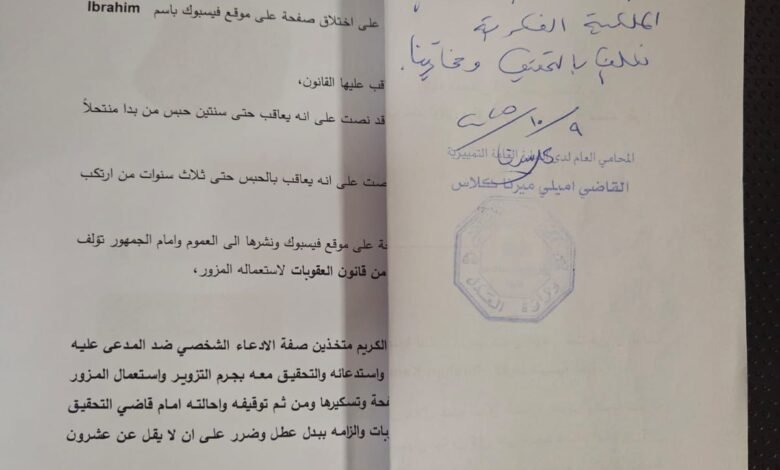 الملكية الفكرية
نكلف بالتحقيق ومخابرتنا.
٩/١٠/
المحامي العام لدى النيابة العامة التمييزية
القاضي اميلي ميرنا كلاس
وزارة العدل
على اختلاق صفحة على موقع فيسبوك باسم Ibrahim
قب عليها القانون،
قد نصت على انه يعاقب حتى سنتين حبس من بدا منتحلاً
نصت على انه يعاقب بالحبس حتى ثلاث سنوات من ارتكب
حة على موقع فيسبوك ونشرها الى العموم وامام الجمهور تؤلف
من قانون العقوبات لاستعماله المزور،
الكريم متخذين صفة الادعاء الشخصي ضد المدعى عليه
واستدعائه والتحقيق معه بجرم التزوير واستعمال المزور
فحة وتسكيرها ومن ثم توقيفه واحالته امام قاضي التحقيق
بات والزامه ببدل عطل وضرر على ان لا يقل عن عشرون